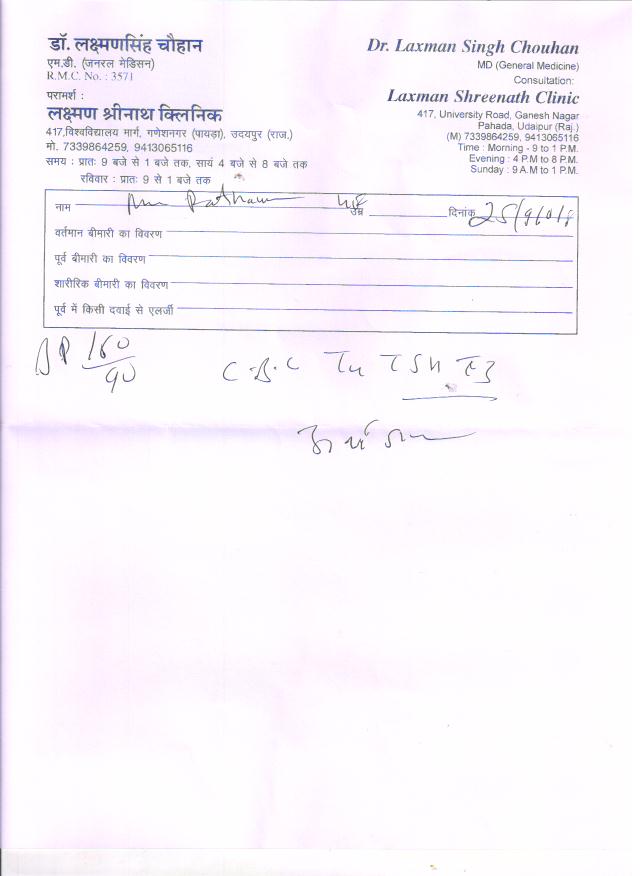 डॉ. लक्ष्मणसिंह चौहान
एम.डी. (जनरल मेडिसन)
R.M.C. No. : 3571
परामर्श :
लक्ष्मण श्रीनाथ क्लिनिक
417,विश्वविद्यालय मार्ग, गणेशनगर (पायड़ा), उदयपुर (राज.)
मो. 7339864259, 9413065116
समय : प्रातः 9 बजे से 1 बजे तक, सायं 4 बजे से 8 बजे तक
रविवार : प्रातः 9 से 1 बजे तक
Dr. Laxman Singh Chouhan
MD (General Medicine)
Consultation:
Laxman Shreenath Clinic
417, University Road, Ganesh Nagar
Pahada, Udaipur (Raj.)
(M) 7339864259, 9413065116
Time : Morning - 9 to 1 P.M.
Evening : 4 P.M to 8 P.M.
Sunday : 9 A.M to 1 P.M.
नाम उम्र दिनांक
वर्तमान बीमारी का विवरण
पूर्व बीमारी का विवरण
शारीरिक बीमारी का विवरण
पूर्व में किसी दवाई से एलर्जी
BP 160/90
C.B.C T4 TSH T3